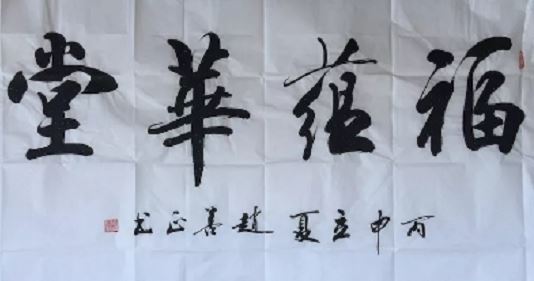 福蕴華堂
丙申立夏 趙善正书